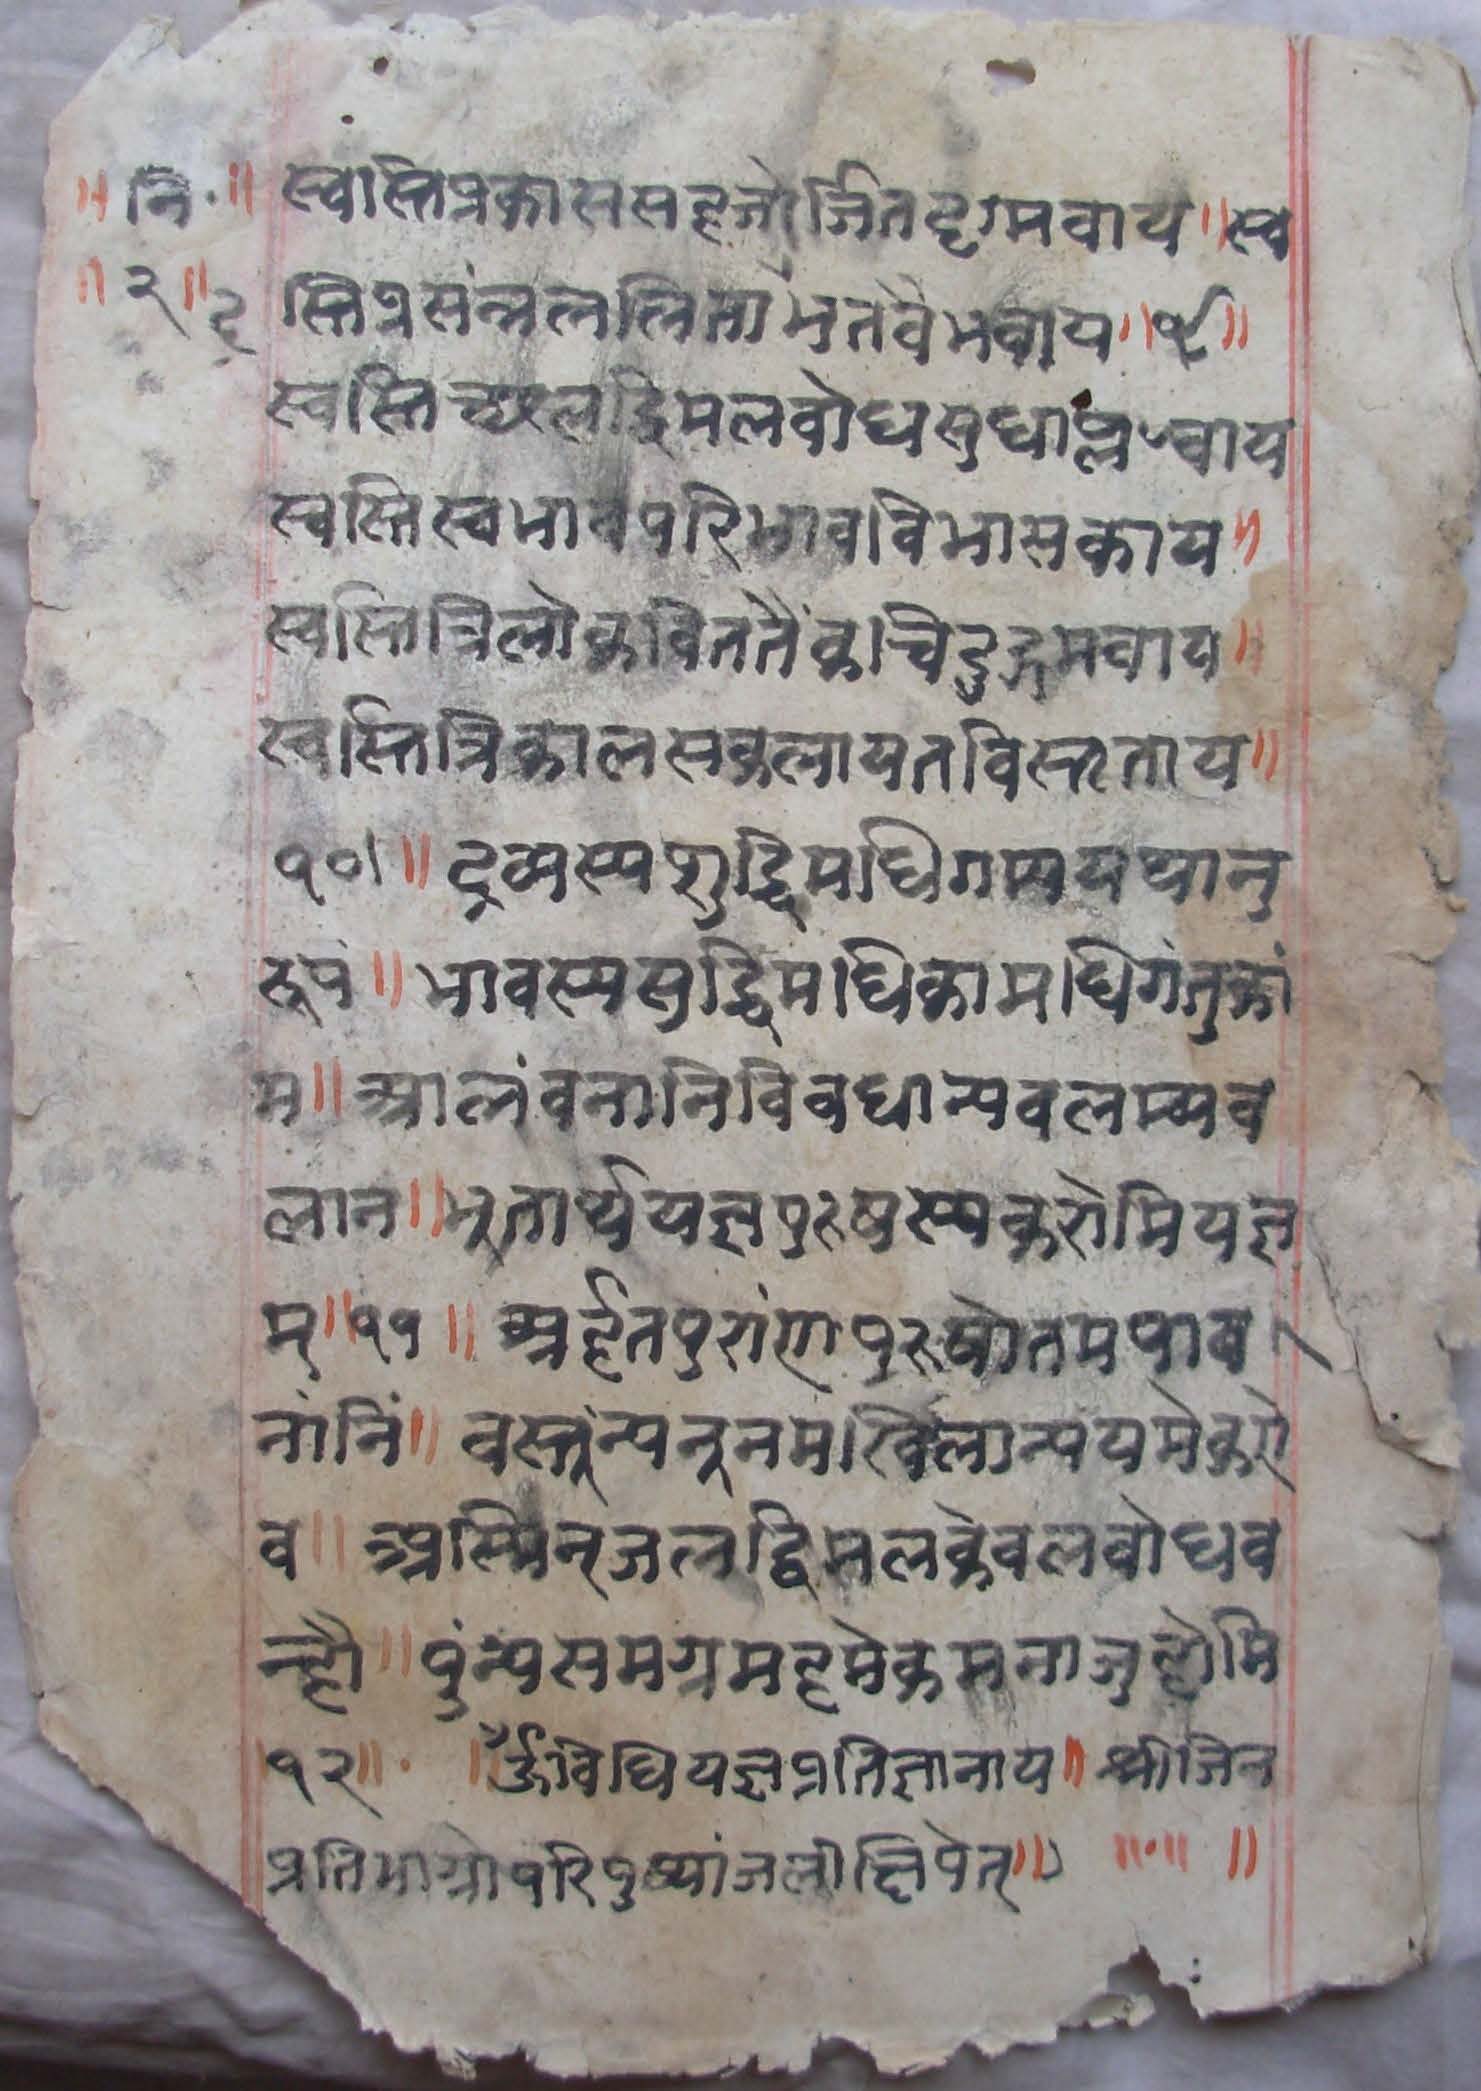 ॥ नि॰ ॥ स्वास्तिप्रकाससहजोर्जितदृगमवाय ॥ स्व
॥ २ ॥ द्द स्तिप्रसंन्नललितामृतवैभवाय ॥ ९ ॥
स्वस्ति च्छलद्विमलवोधसुधाप्लवाय
स्वस्तिस्वभावपरिभावविभासकाय ॥
स्वस्तित्रिलोकविततैंकचिदुद्गमवाय ॥
स्वस्तित्रिकालसकलायतविस्तृताय ॥
१० ॥ द्रव्यस्यशुद्धिमधिगम्ययथानु
रूपं ॥ भावस्यसुद्धिमधिकामधिगंतुकां
म ॥ आलंवनानिविवधान्यवलम्व्यव
लान ॥ भूतार्थयज्ञपुरुषस्यकरोमियज्ञ
म् ॥ ११ ॥ अर्हतपुरांणपुरुषोतमपाव
नांनिं ॥ वस्तूंन्यनूनमखिलान्ययमेकए
व ॥ अस्मिन्जलद्विमलकेवलवोधव
न्हौ ॥ पुंन्यसमग्रमहमेकमनाजुहोमि
१२ ॥ ॰ ॥ ॐविधियज्ञप्रतिज्ञानाय ॥ श्रीजिन
प्रतिमाग्रोपरिपुष्पांजलीक्षिपेत् ॥ ॥॰॥ ॥